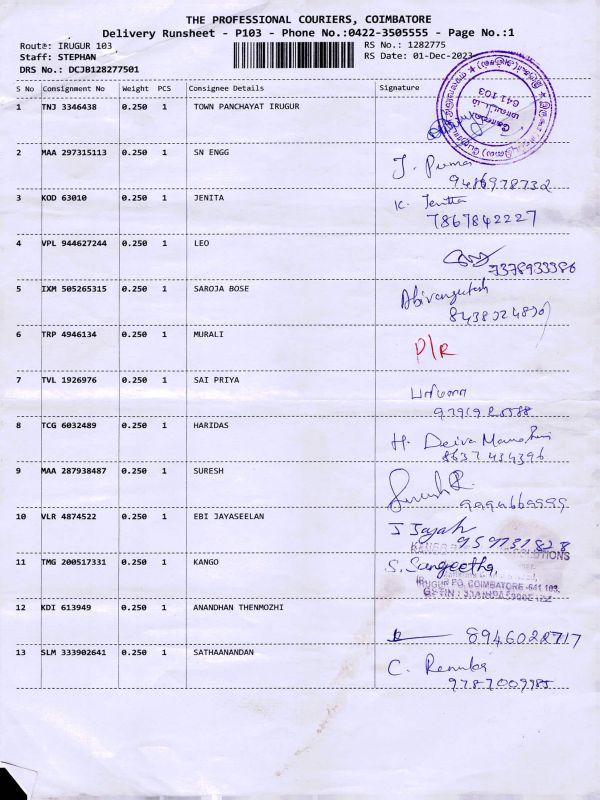 THE PROFESSIONAL COURIERS, COIMBATORE
Delivery Runsheet - P103 - Phone No.:0422-3505555 - Page No.:1
Route: IRUGUR 103
RS No.: 1282775
Staff: STEPHAN
RS Date: 01-Dec-2023
DRS No.: DCJB128277501
S No Consignment No Weight PCS Consignee Details Signature
641 103
1 TNJ 3346438 0.250 1 TOWN PANCHAYAT IRUGUR
2 MAA 297315113 0.250 1 SN ENGG
9486978732
3 KOD 63010 0.250 1 JENITA K. Jenitta
7867842227
4 VPL 944627244 0.250 1 LEO
7378933386
5 IXM 505265315 0.250 1 SAROJA BOSE
6 TRP 4946134 0.250 1 MURALI P/R
7 TVL 1926976 0.250 1 SAI PRIYA
8 TCG 6032489 0.250 1 HARIDAS H. Deiva
8637434396
9 MAA 287938487 0.250 1 SURESH
10 VLR 4874522 0.250 1 EBI JAYASEELAN
11 TMG 200517331 0.250 1 KANGO S. Sangeetha,
IRUGUR PO, COIMBATORE -641 103.
12 KDI 613949 0.250 1 ANANDHAN THENMOZHI
8946022717
13 SLM 333902641 0.250 1 SATHAANANDAN C. Renuka
9787009985